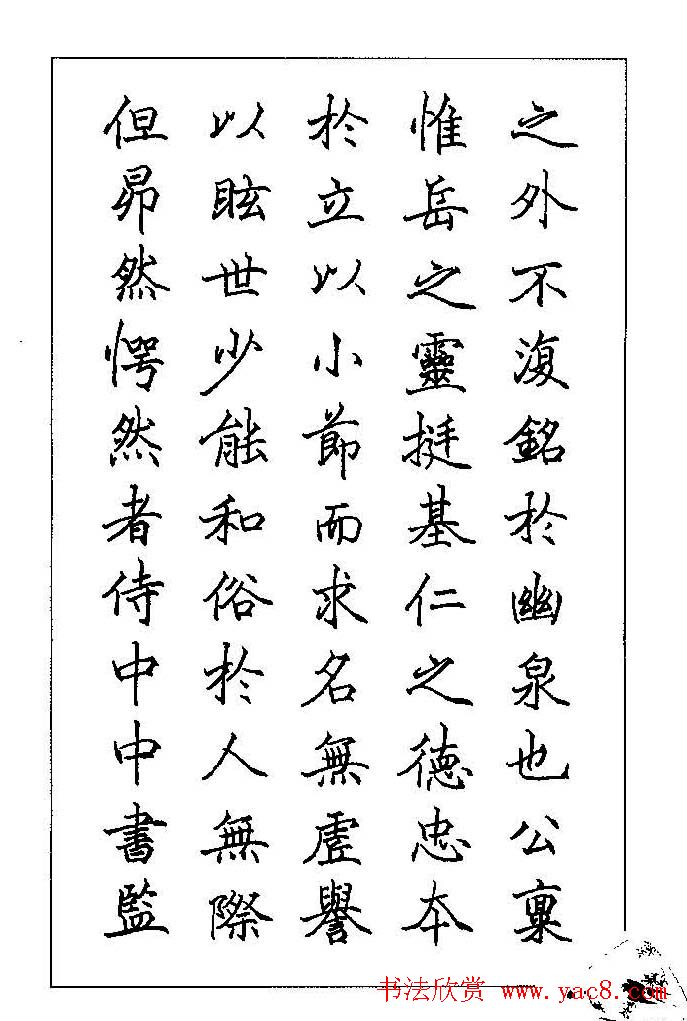 之外不復銘於幽泉也公禀
惟岳之靈挺基仁之德忠本
於立以小節而求名無虛譽
以眩世少能和俗於人無際
但昂然愕然者侍中中書監
书法欣赏 www.yac8.com